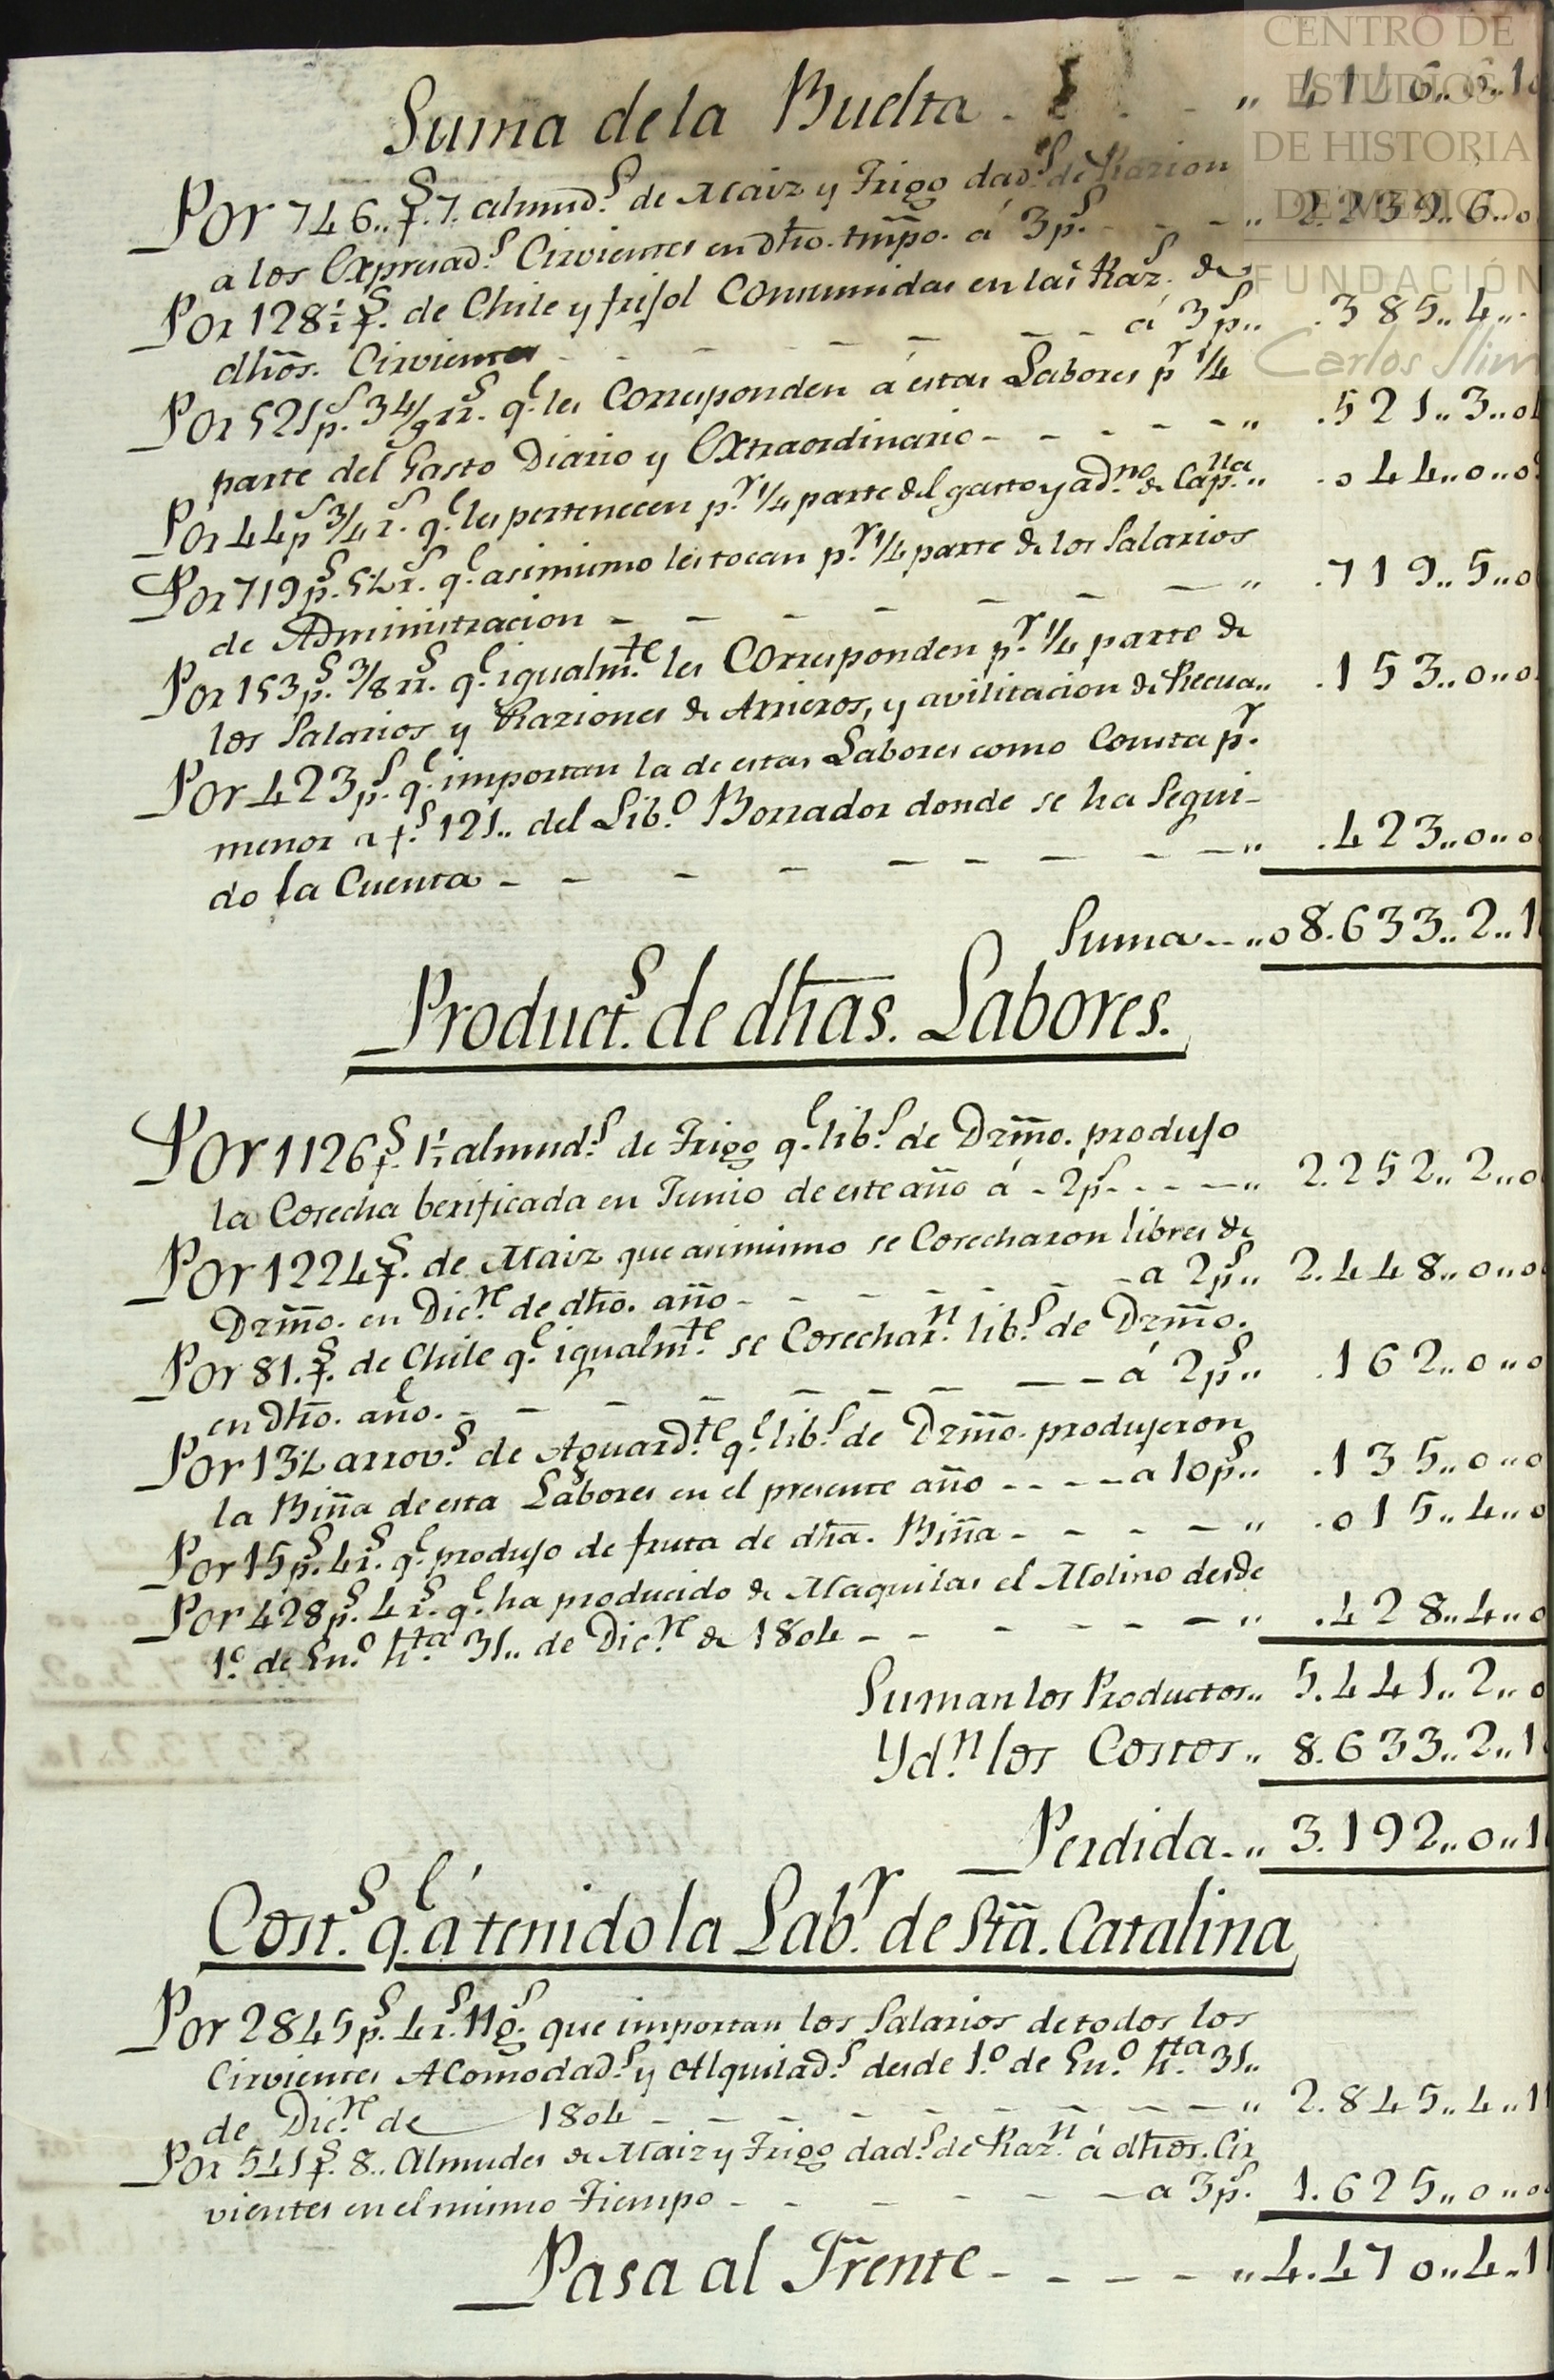 CENTRO DE
ESTUDIOS
DE HISTORIA
DE MEXICO
FUNDACIÓN
Carlos Slim
Suma de la Buelta - - - „ 4.146„6„1
Por 746„ f.s 7. almud.s de Maiz y Trigo dad.s de Razion
a los Expresad.s Cirvientes en dho. tmpo. á 3 p.s - - - „ 2.239„6„0
Por 128½ f.s de Chile y frijol Consumidas en las Raz.s de
dhõs. Cirvientes - - - - - - á 3 p.s„ .385„4„.
Por 521 p.s 3 4/9 rr.s q.e les Corresponden á estas Labores p.r 1/4
parte del Gasto Diario y Extraordinario - - - - - „ .521„3„0
Por 44 p.s 3/4 r.s q.e les pertenecen p.r 1/4 parte del gasto y ad.no de Cap.lla„ .044„0„0
Por 719 p.s 5½ r.s q.e asimismo les tocan p.r 1/4 parte de los Salarios
de Administracion - - - - - - „ .719„5„0
Por 153 p.s 3/8 rr.s q.e igualm.te les Corresponden p.r 1/4 parte de
los Salarios y Raziones de Arrieros, y avilitacion de Recua„ .153„0„0
Por 423 p.s q.e importan la de estas Labores como Consta p.r
menor a f.s 121„ del Lib.o Borrador donde se ha Segui-
do la Cuenta - - - - - - - - „ .423„0„0
Suma - - „0 8.633„2„1
Product.s de dhas. Labores.
Por 1126 f.s 1½ almud.s de Trigo q.e lib.s de Dzmo. produjo
la Cosecha berificada en Junio de este año á - 2 p.s - - - „ 2.252„2„0
Por 1224 f.s de Maiz que asimismo se Cosecharon libres de
Dzmo. en Dic.re de dho. año - - - - - - a 2 p.s„ 2.448„0„0
Por 81. f.s de Chile q.e igualm.te se Cosechar.n lib.s de Dzmo.
en dho. año. - - - - - - - - á 2 p.s„ .162„0„0
Por 13½ arrov.s de Aguard.te q.e lib.s de Dzmo. produjeron
la Biña de esta Labores en el presente año - - - - a 10 p.s„ .135„0„0
Por 15 p.s 4 r.s q.e produjo de fruta de dha. Biña - - - - „ .015„4„0
Por 428 p.s 4 r.s q.e ha producido de Maquilas el Molino desde
1.o de En.o h.ta 31„ de Dic.re de 1804 - - - - - - „ .428„4„0
Suman los Productos„ 5.441„2„0
Yd.n los Costos„ 8.633„2„1
Perdida - „ 3.192„0„1
Cost.s q.e á tenido la Lab.r de Sta. Catalina
Por 2845 p.s 4 r.s 11 g.s que importan los Salarios de todos los
Cirvientes Acomodad.s y Alquilad.s desde 1.o de En.o h.ta 31„
de Dic.re de 1804 - - - - - - - - „ 2.845„4„1
Por 541 f.s 8„ Almudes de Maiz y Trigo dad.s de Raz.n á dhos. Cir
vientes en el mismo Tiempo - - - - - - a 3 p.s 1.625„0„0
Pasa al Frente - - - - - „ 4.470„4„1